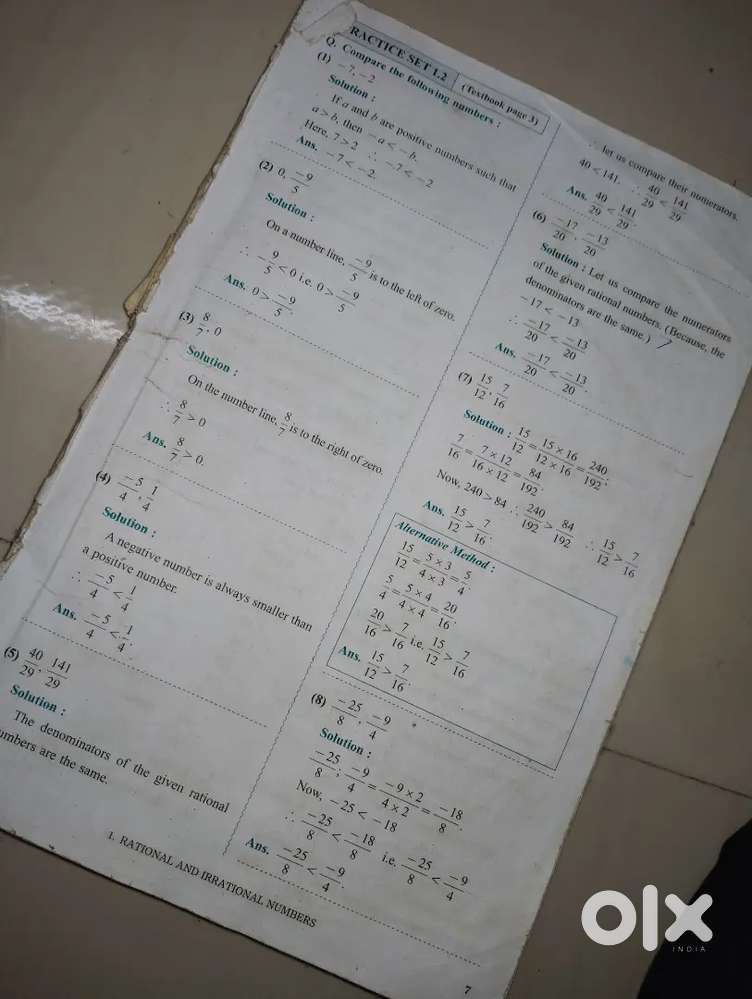 RACTICE SET 1.2 (Textbook page 3)
Q. Compare the following numbers :
(1) −7, −2
Solution :
If a and b are positive numbers such that
a > b, then −a < −b.
Here, 7 > 2 ∴ −7 < −2
Ans. −7 < −2.
(2) 0, −9/5
Solution :
On a number line, −9/5 is to the left of zero.
∴ −9/5 < 0 i.e. 0 > −9/5
Ans. 0 > −9/5.
(3) 8/7, 0
Solution :
On the number line, 8/7 is to the right of zero.
∴ 8/7 > 0
Ans. 8/7 > 0.
(4) −5/4, 1/4
Solution :
A negative number is always smaller than
a positive number.
∴ −5/4 < 1/4
Ans. −5/4 < 1/4.
(5) 40/29, 141/29
Solution :
The denominators of the given rational
umbers are the same.
∴ let us compare their numerators.
40 < 141. ∴ 40/29 < 141/29
Ans. 40/29 < 141/29.
(6) −17/20, −13/20
Solution : Let us compare the numerators
of the given rational numbers. (Because, the
denominators are the same.)
−17 < −13
∴ −17/20 < −13/20
Ans. −17/20 < −13/20.
(7) 15/12, 7/16
Solution : 15/12 = 15 × 16/12 × 16 = 240/192;
7/16 = 7 × 12/16 × 12 = 84/192.
Now, 240 > 84 ∴ 240/192 > 84/192 ∴ 15/12 > 7/16
Ans. 15/12 > 7/16.
Alternative Method :
15/12 = 5 × 3/4 × 3 = 5/4.
5/4 = 5 × 4/4 × 4 = 20/16.
20/16 > 7/16 i.e. 15/12 > 7/16
Ans. 15/12 > 7/16.
(8) −25/8, −9/4
Solution :
−25/8; −9/4 = −9 × 2/4 × 2 = −18/8.
Now, −25 < −18
∴ −25/8 < −18/8 i.e. −25/8 < −9/4
Ans. −25/8 < −9/4.
1. RATIONAL AND IRRATIONAL NUMBERS
7
olx
INDIA